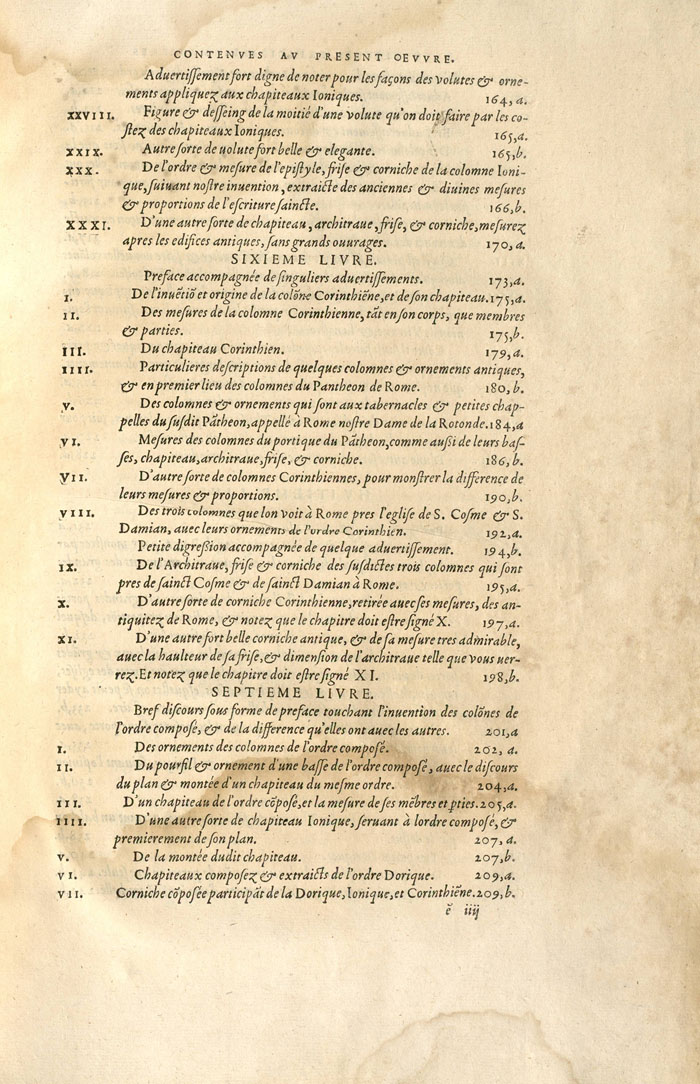 CONTENVES AV PRESENT OEVVRE.
Aduertiſſement fort digne de noter pour les façons des volutes & orne-
ments appliquez aux chapiteaux Ioniques. 164,a.
XXVIII. Figure & deſſeing de la moitié d'une volute qu'on doit faire par les co-
ſtez des chapiteaux Ioniques. 165,a.
XXIX. Autre ſorte de uolute fort belle & elegante. 165,b.
XXX. De l'ordre & meſure de l'epiſtyle, friſe & corniche de la colomne Ioni-
que, ſuiuant noſtre inuention, extraicte des anciennes & diuines meſures
& proportions de l'eſcriture ſaincte. 166,b.
XXXI. D'une autre ſorte de chapiteau, architraue, friſe, & corniche, meſurez
apres les edifices antiques, ſans grands ouurages. 170,a.
SIXIEME LIVRE.
Preface accompagnée de ſinguliers aduertiſſements. 173,a.
I. De l'inuētiō et origine de la colōne Corinthiēne, et de ſon chapiteau. 175,a.
II. Des meſures de la colomne Corinthienne, tāt en ſon corps, que membres
& parties. 175,b.
III. Du chapiteau Corinthien. 179,a.
IIII. Particulieres deſcriptions de quelques colomnes & ornements antiques,
& en premier lieu des colomnes du Pantheon de Rome. 180,b.
V. Des colomnes & ornements qui ſont aux tabernacles & petites chap-
pelles du ſuſdit Pātheon, appellé à Rome noſtre Dame de la Rotonde. 184,a
VI. Meſures des colomnes du portique du Pātheon, comme außi de leurs baſ-
ſes, chapiteau, architraue, friſe, & corniche. 186,b.
VII. D'autre ſorte de colomnes Corinthiennes, pour monſtrer la difference de
leurs meſures & proportions. 190,b.
VIII. Des trois colomnes que lon voit à Rome pres l'egliſe de S. Coſme & S.
Damian, auec leurs ornements de l'ordre Corinthien. 192,a.
Petite digreßion accompagnée de quelque aduertiſſement. 194,b.
IX. De l'Architraue, friſe & corniche des ſuſdictes trois colomnes qui ſont
pres de ſainct Coſme & de ſainct Damian à Rome. 195,a.
X. D'autre ſorte de corniche Corinthienne, retirée auec ſes meſures, des an-
tiquitez de Rome, & notez que le chapitre doit eſtre ſigné X. 197,a.
XI. D'une autre fort belle corniche antique, & de ſa meſure tres admirable,
auec la haulteur de ſa friſe, & dimenſion de l'architraue telle que vous uer-
rez. Et notez que le chapitre doit eſtre ſigné XI. 198,b.
SEPTIEME LIVRE.
Bref diſcours ſous forme de preface touchant l'inuention des colōnes de
l'ordre compoſé, & de la difference qu'elles ont auec les autres. 201,a
I. Des ornements des colomnes de l'ordre compoſé. 202, a.
II. Du pourfil & ornement d'une baſſe de l'ordre compoſé, auec le diſcours
du plan & montée d'un chapiteau du meſme ordre. 204,a.
III. D'un chapiteau de l'ordre cōpoſé, et la meſure de ſes mēbres et ꝑties. 205,a.
IIII. D'une autre ſorte de chapiteau Ionique, ſeruant à lordre compoſé, &
premierement de ſon plan. 207, a.
V. De la montée dudit chapiteau. 207,b.
VI. Chapiteaux compoſez & extraicts de l'ordre Dorique. 209,a.
VII. Corniche cōpoſée participāt de la Dorique, Ionique, et Corinthiēne. 209, b.
ē iiij